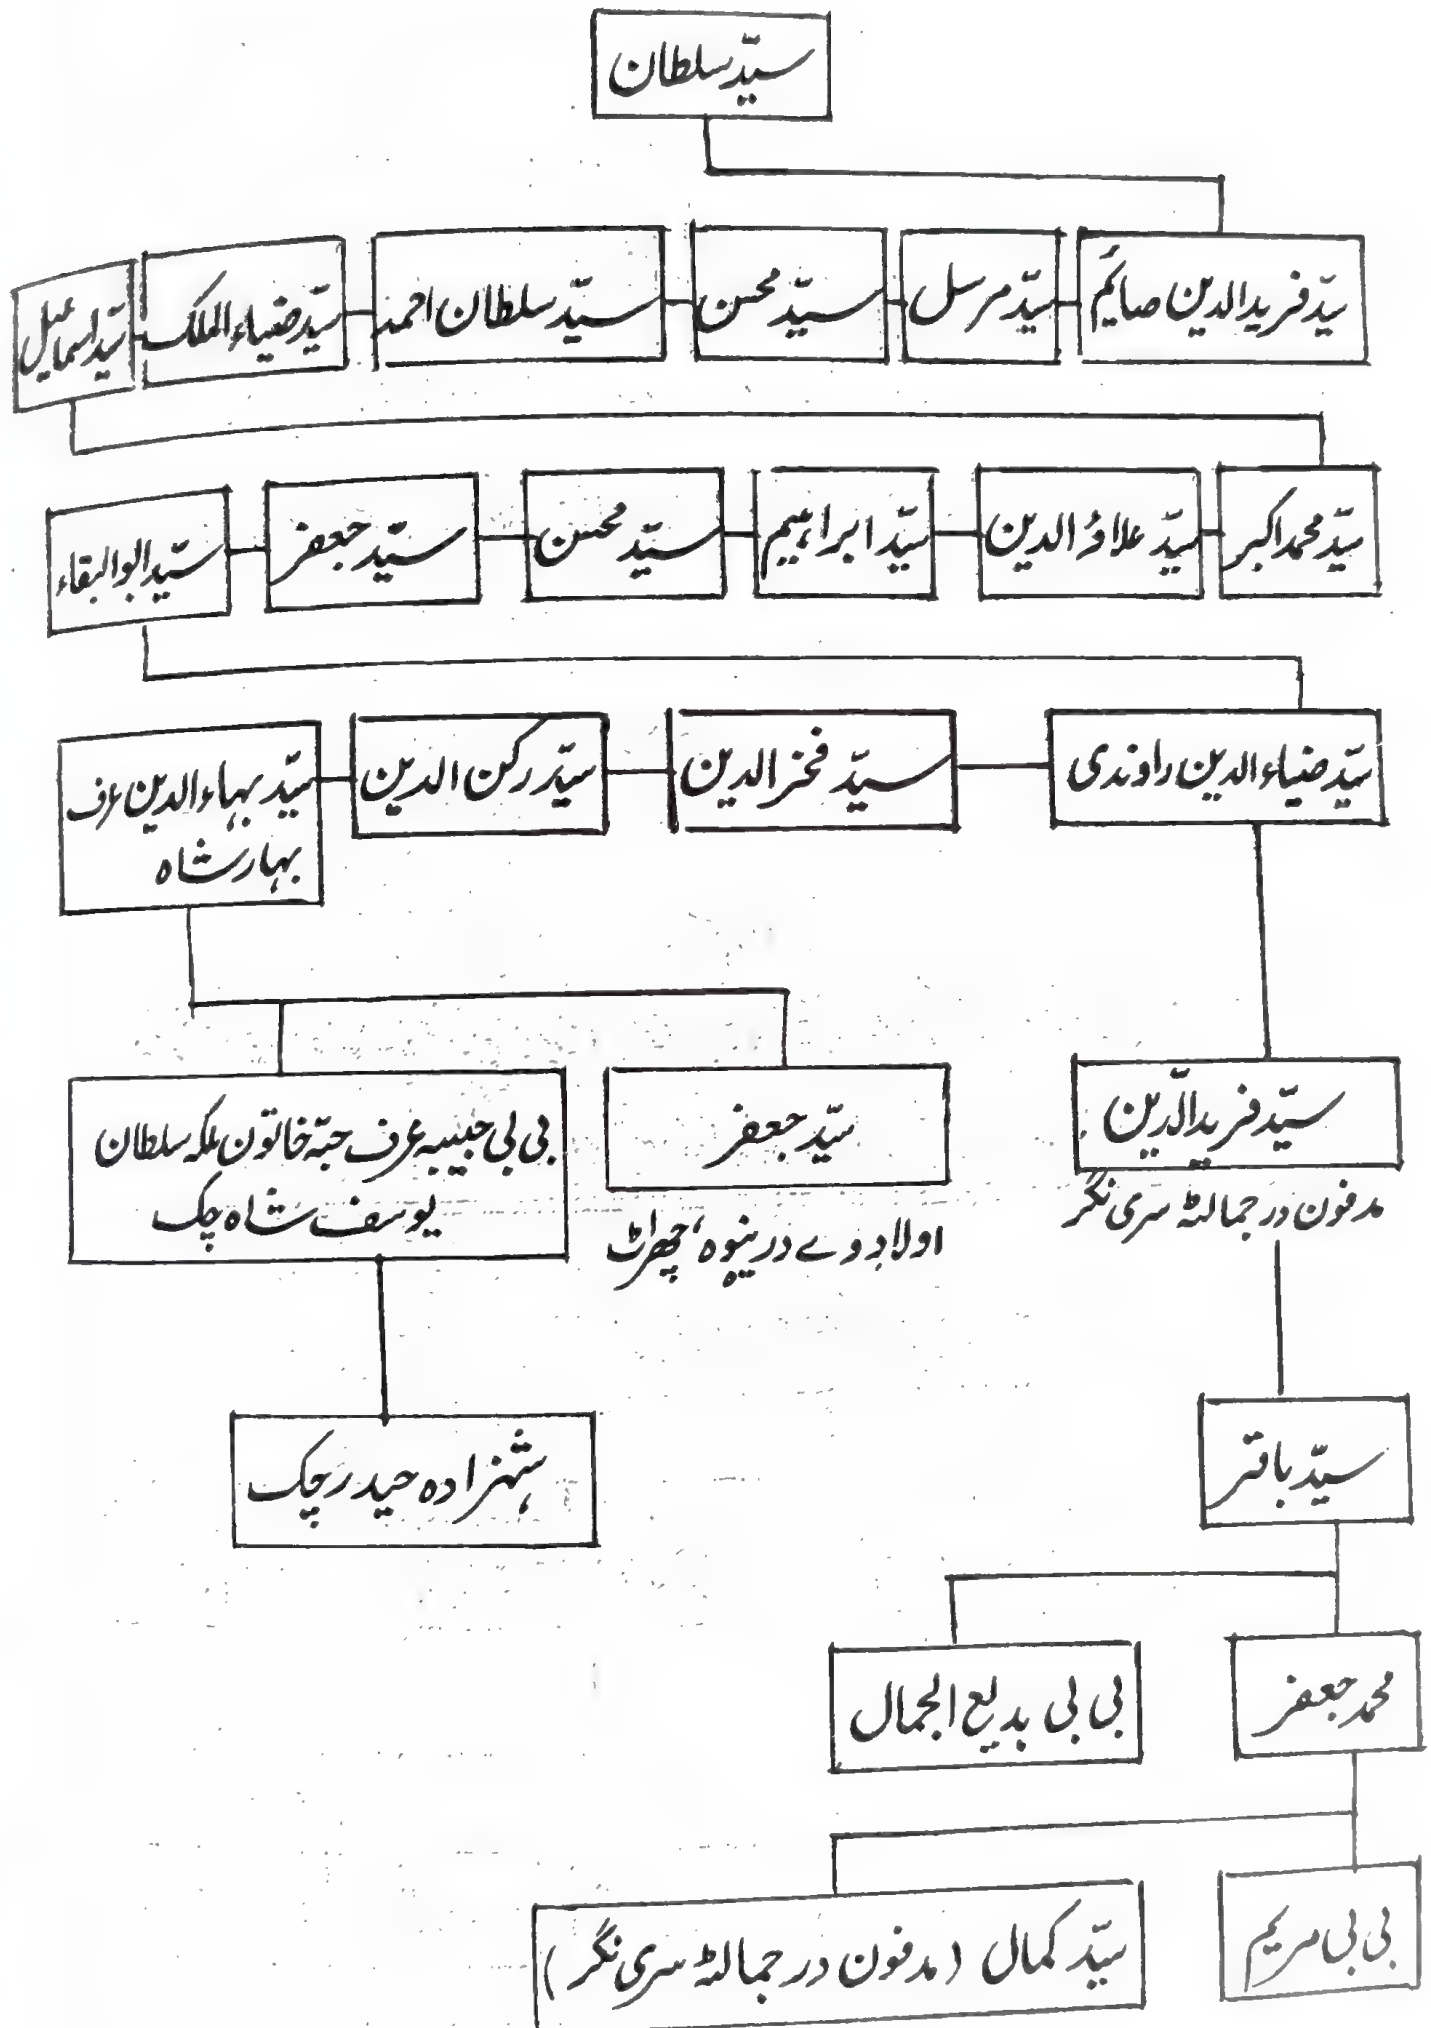 سیّد سلطان
سیّد فریدالدین صائم
سیّد مرسل
سیّد محسن
سیّد سلطان احمد
سیّد ضیاء الملک
سیّد اسماعیل
سیّد محمد اکبر
سیّد علاؤ الدین
سیّد ابراہیم
سیّد محسن
سیّد جعفر
سیّد ابوالبقاء
سیّد ضیاء الدین راوندی
سیّد فخرالدین
سیّد رکن الدین
سیّد بہاء الدین عرف
بہار شاہ
سیّد فریدالدّین
مدفون در جمالٹہ سری نگر
سیّد جعفر
اولادِ وے در بنوہ، چھراٹ
بی بی حبیبہ عرف حبّہ خاتون ملکہ سلطان
یوسف شاہ چک
شہزادہ حیدر چک
سیّد باقر
محمد جعفر
بی بی بدیع الجمال
بی بی مریم
سیّد کمال (مدفون در جمالٹہ سری نگر)